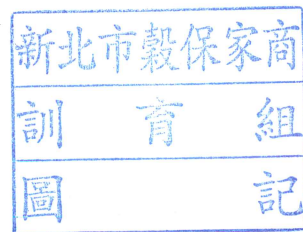 新北市穀保家商
訓育組
圖記